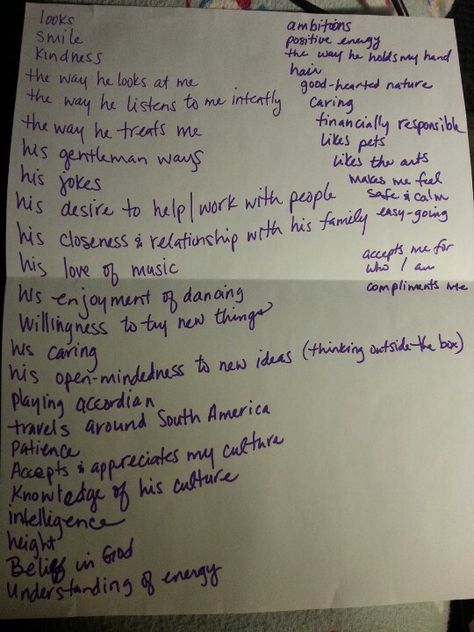 looks
smile
kindness
the way he looks at me
the way he listens to me intently
the way he treats me
his gentleman ways
his jokes
his desire to help/work with people
his closeness & relationship with his family
his love of music
his enjoyment of dancing
Willingness to try new things
his caring
his open-mindedness to new ideas (thinking outside-the box)
playing accordian
travels around South America
Patience
Accepts & appreciates my culture
Knowledge of his culture
intelligence
height
Belief in God
Understanding of energy
ambitions
positive energy
the way he holds my hand
hair
good-hearted nature
Caring
financially responsible
likes pets
likes the arts
makes me feel
safe & calm
easy-going
accepts me for
who I am
compliments me